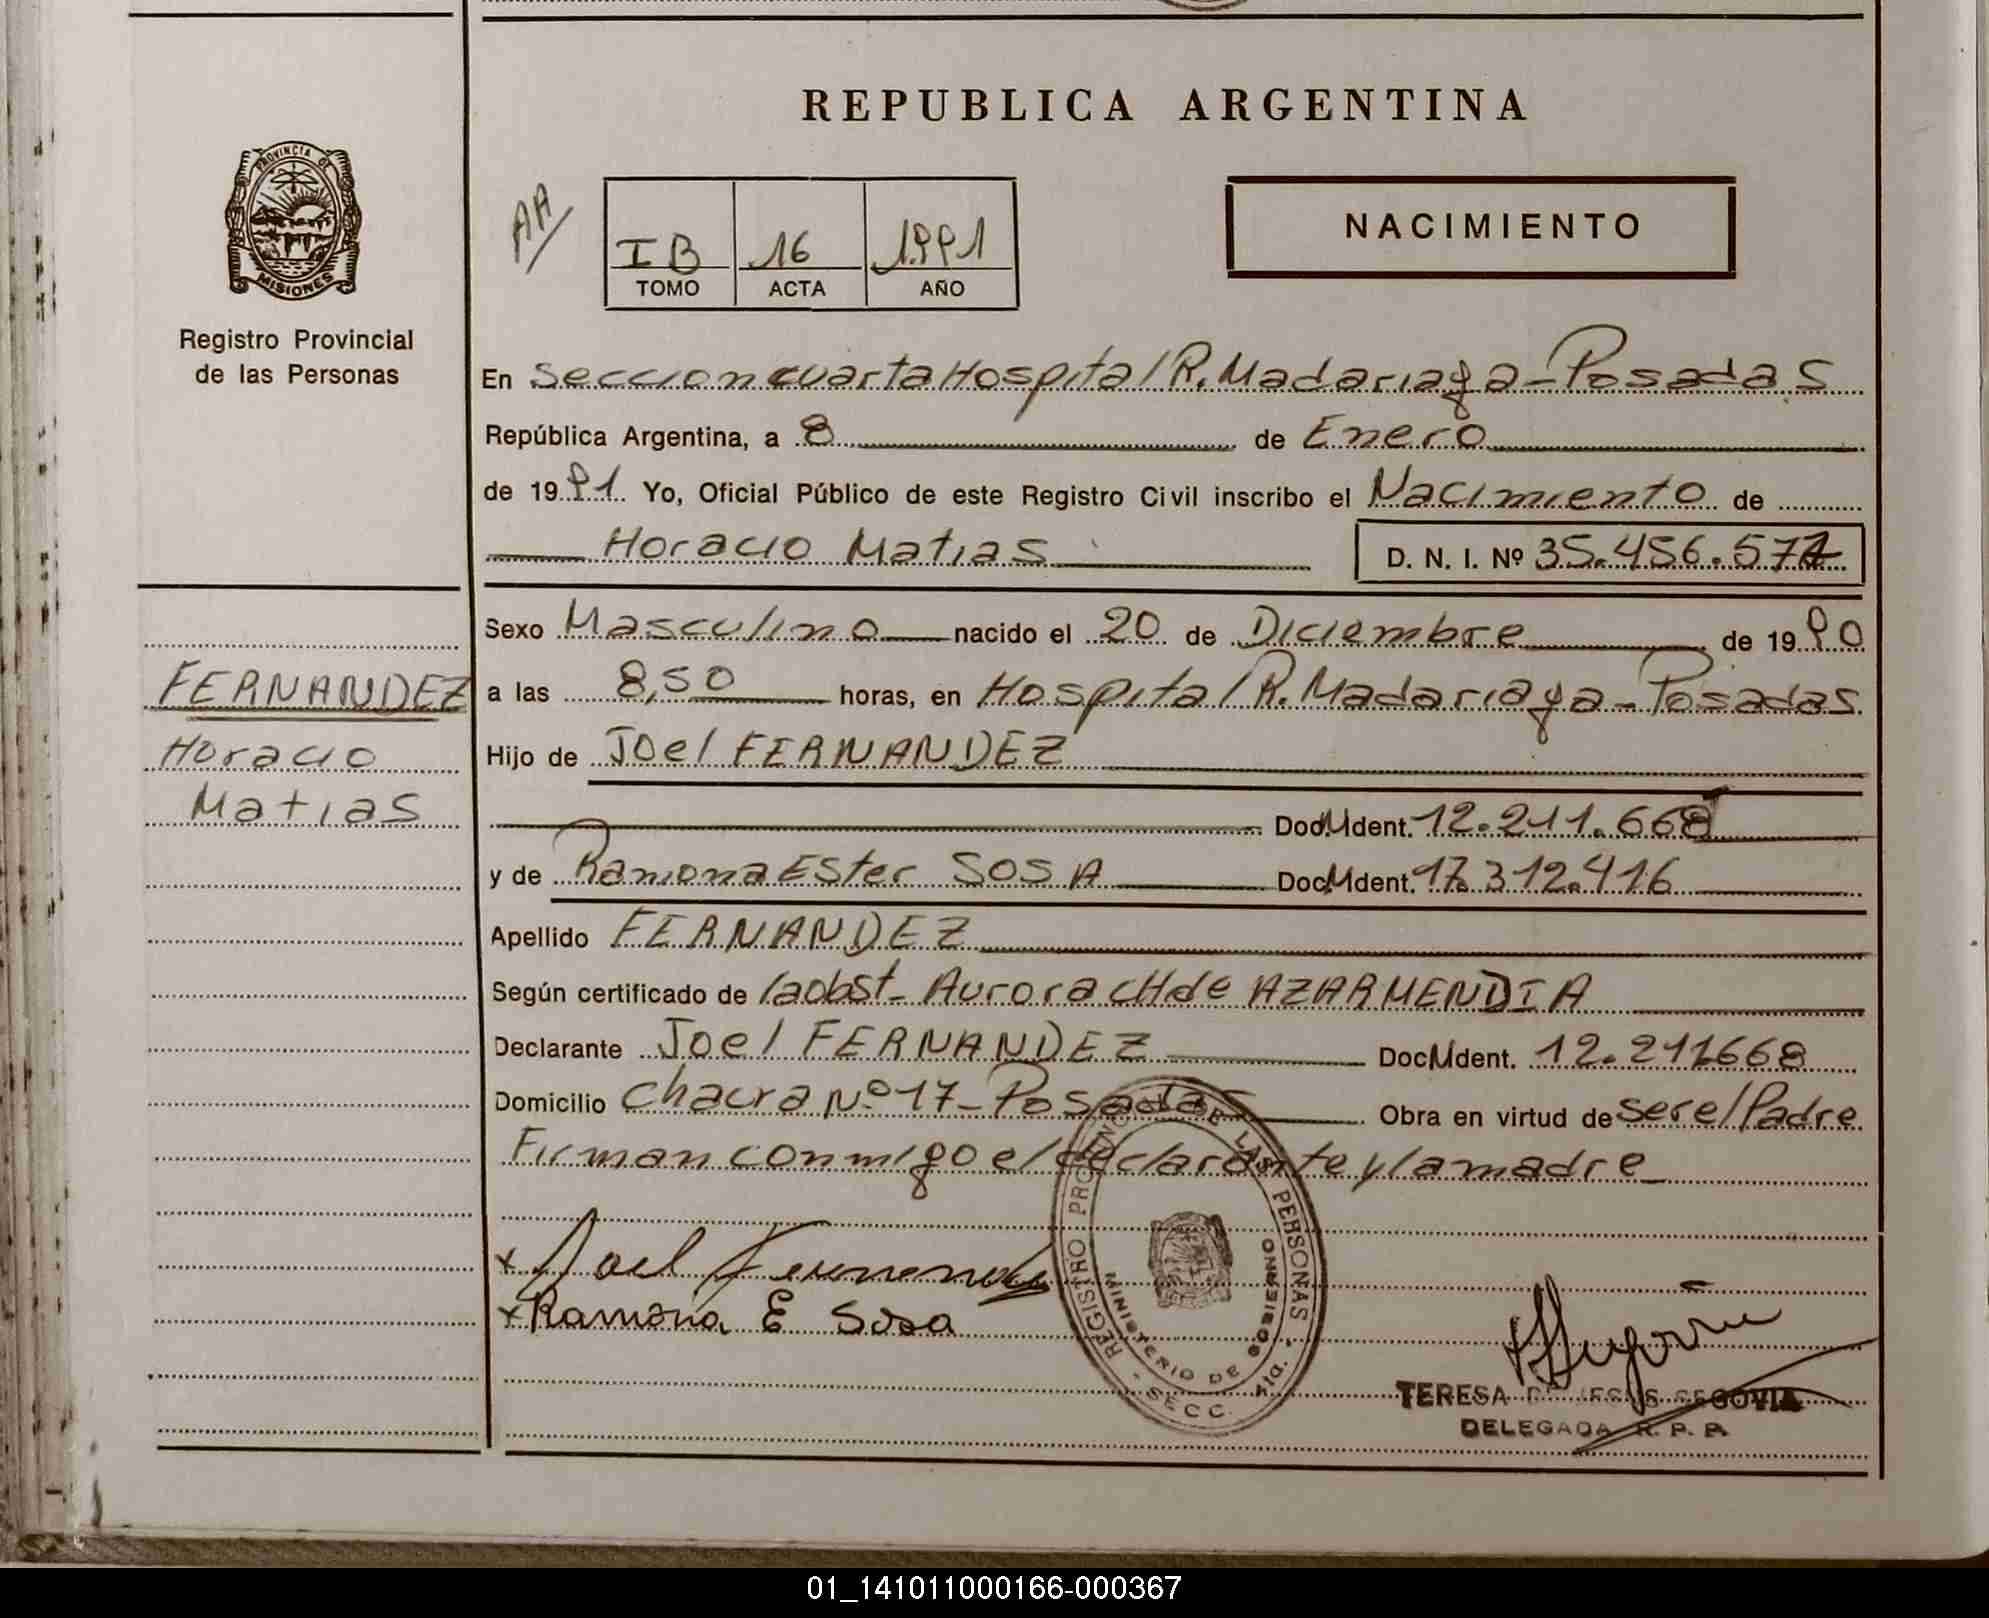 REPUBLICA ARGENTINA
PROVINCIA DE
MISIONES
Registro Provincial
de las Personas
AA
IB 16 1.991
TOMO ACTA AÑO
NACIMIENTO
En Seccion cuarta Hospital R. Madariaga - Posadas
República Argentina, a 8 de Enero
de 1991 Yo, Oficial Público de este Registro Civil inscribo el Nacimiento de
Horacio Matias D. N. I. Nº 35.456.571
Sexo Masculino nacido el 20 de Diciembre de 1990
FERNANDEZ
Horacio
Matias
a las 8,50 horas, en Hospital R. Madariaga - Posadas
Hijo de Joel FERNANDEZ
Doc. Ident. 12.211.668
y de Ramona Ester SOSA Doc. Ident. 17.312.416
Apellido FERNANDEZ
Según certificado de la obst - Aurora CH de AZARMENDIA
Declarante Joel FERNANDEZ Doc. Ident. 12.211668
Domicilio Chacra Nº 17 - Posadas Obra en virtud de ser el Padre
Firman conmigo el declarante y la madre
x Joel Fernandez
x Ramona E Sosa
REGISTRO PROVINCIAL DE LAS PERSONAS
MINISTERIO DE GOBIERNO
SECC.
TERESA DE JESUS SEGOVIA
DELEGADA R. P. P.
01_141011000166-000367